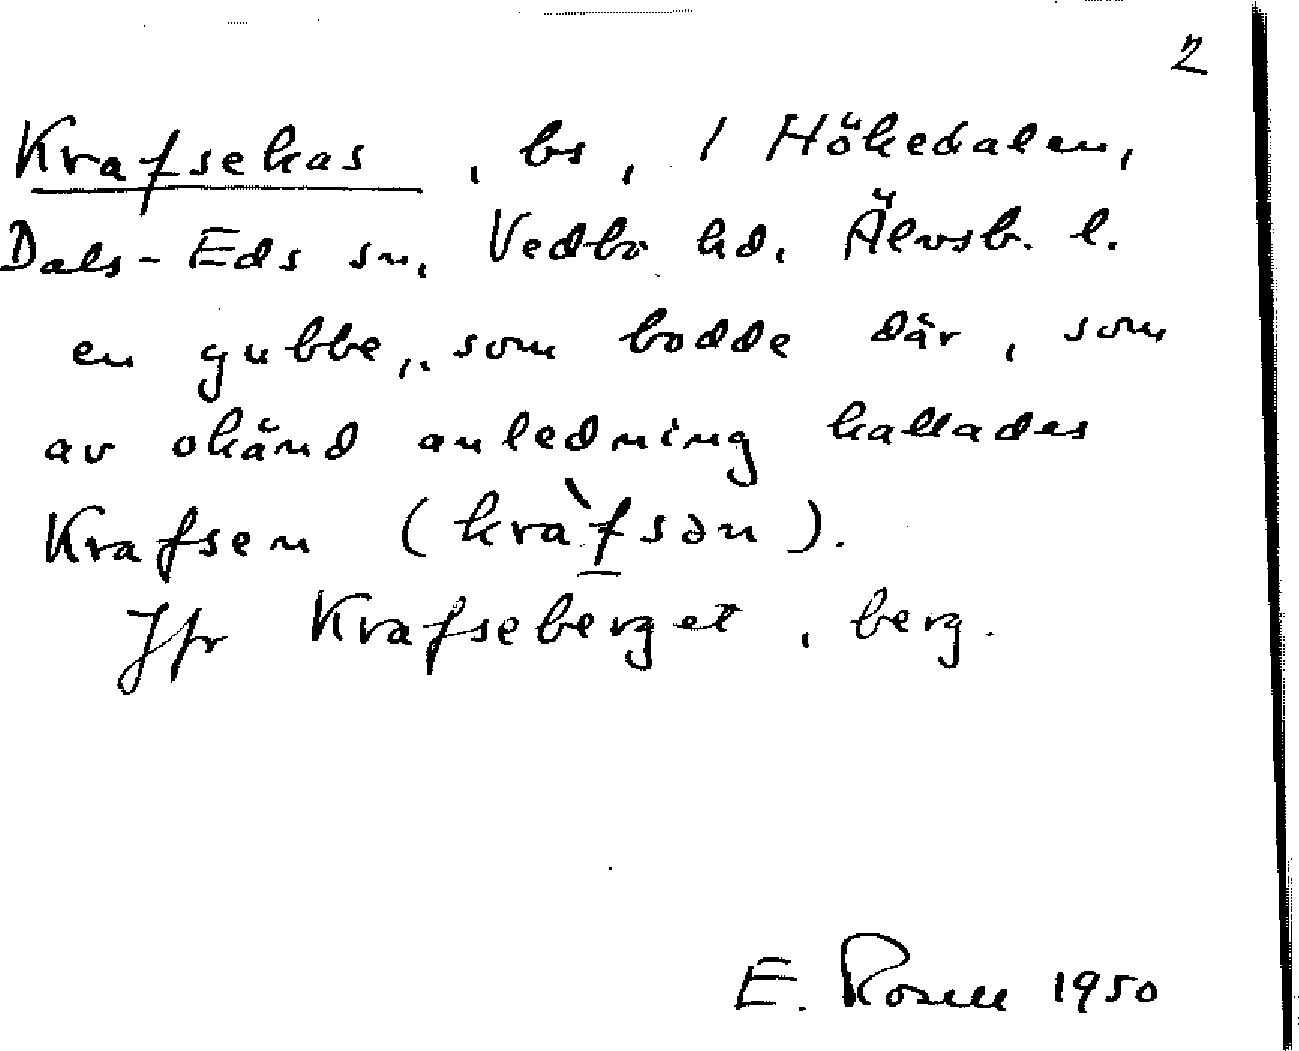 2
Krafsekas, bs, 1 Hökedalen,
Dals-Eds sn, Vedbo hd. Älvsb. l.
en gubbe, som bodde där, som
av okänd anledning kallades
Krafsen (kràfsən).
Jfr Krafseberget, berg.
E. Rosell 1950